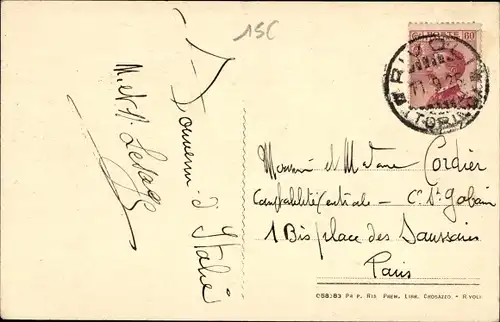 15C
Souvenir d'Italie
M. et M. Lesage
POSTE 60
RIVOLI
(TORINO)
Monsieur et Madame Cordier
Comptabilité Centrale – Cie St Gobain
1 Bis place des Saussaies
Paris
058383 PR P. RIS. PREM. LIBR. CROSAZZO - RIVOLI